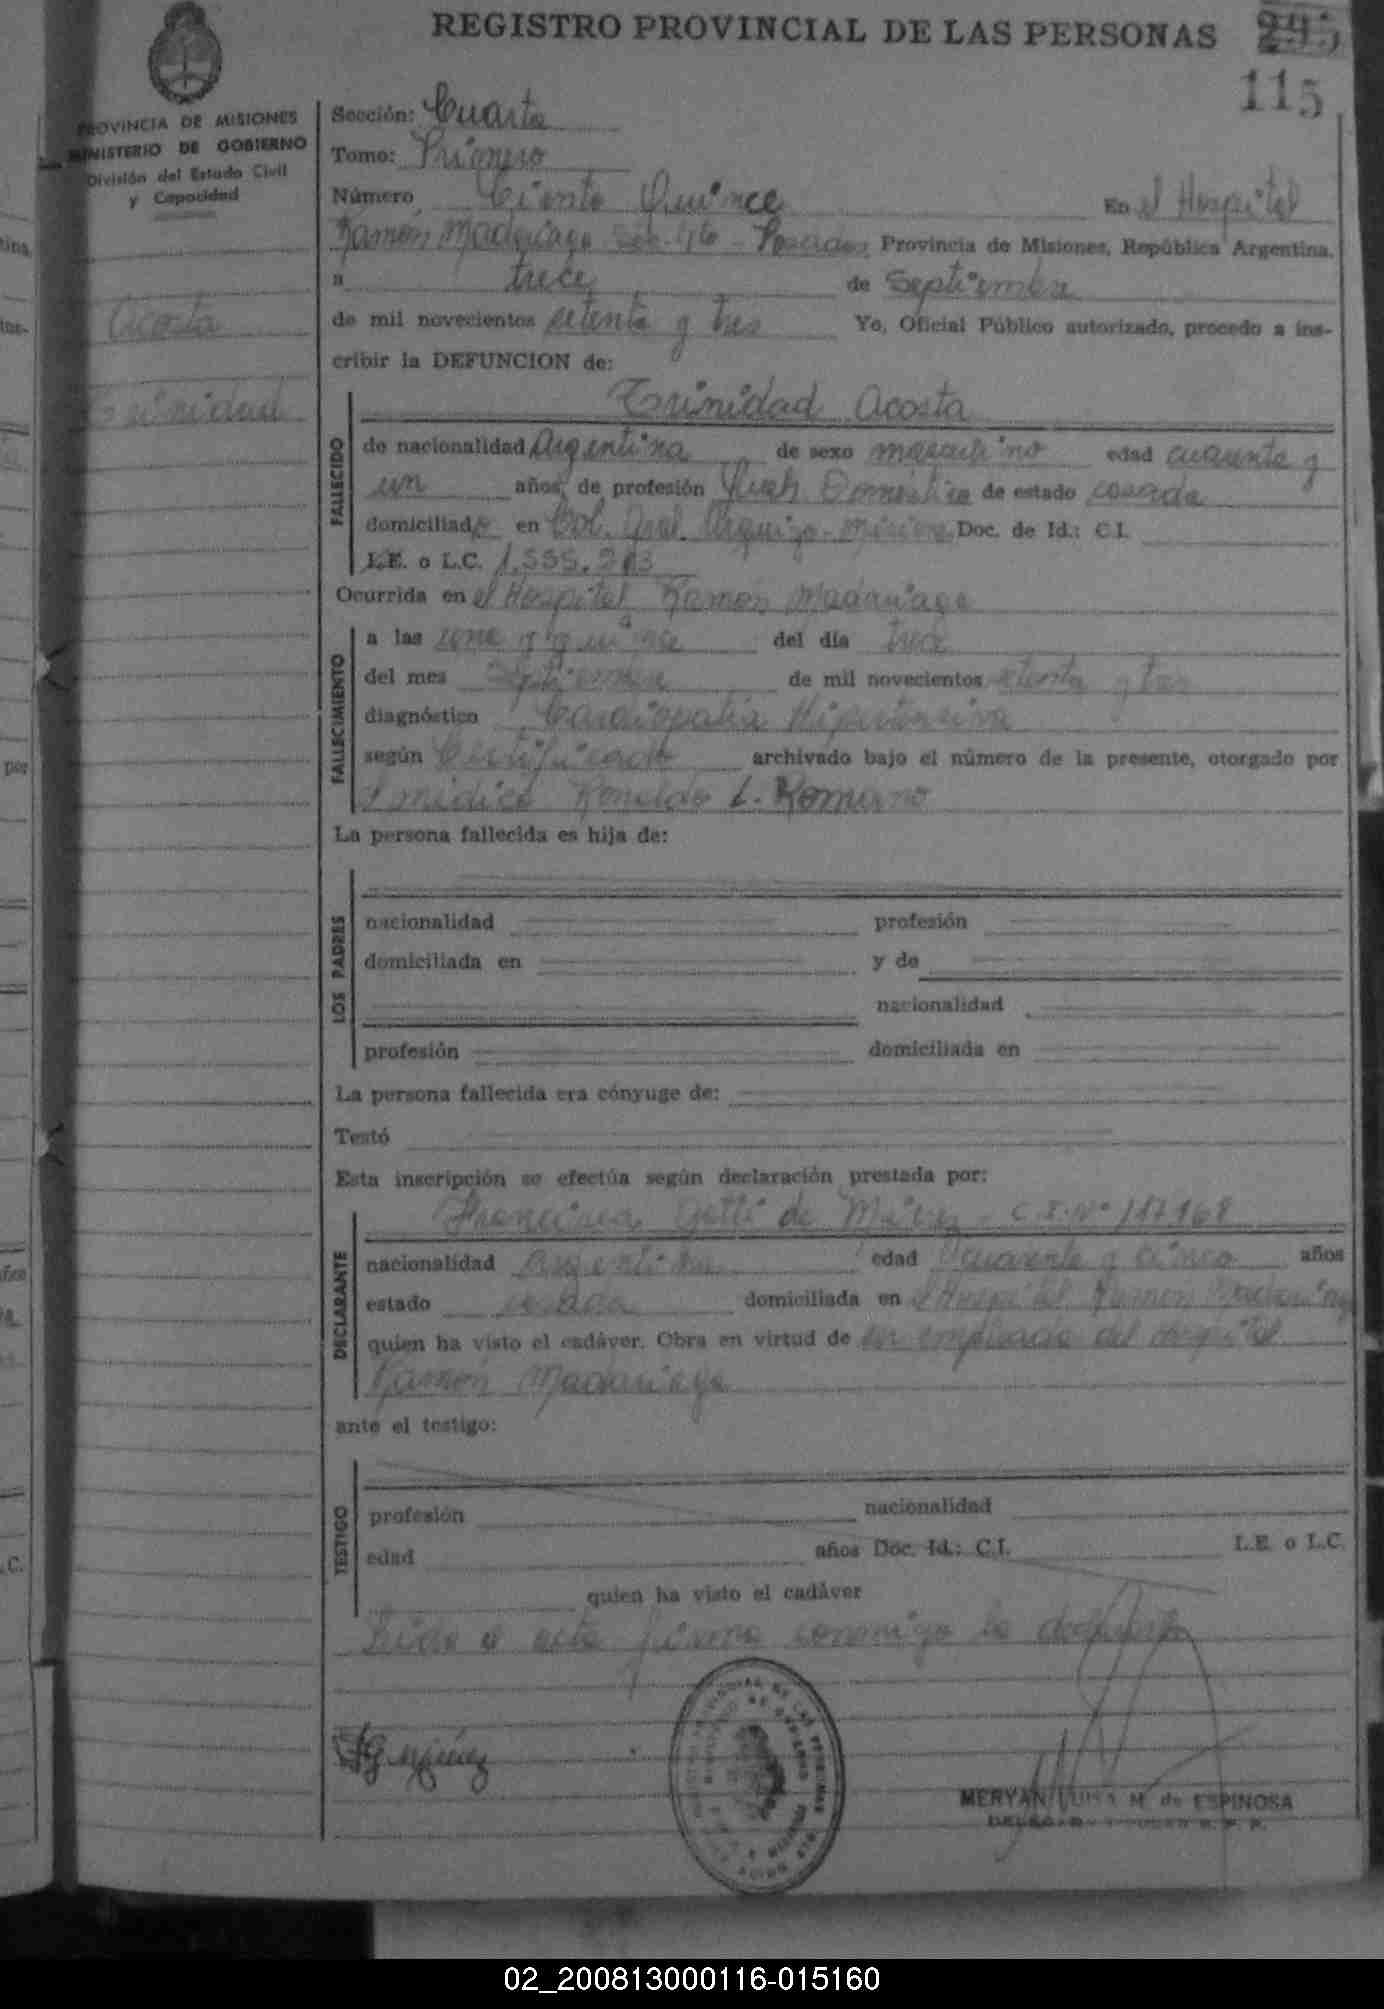 REGISTRO PROVINCIAL DE LAS PERSONAS
115
PROVINCIA DE MISIONES
MINISTERIO DE GOBIERNO
División del Estado Civil
y Capacidad
Acosta
Trinidad
Sección: Cuarta
Tomo: Primero
Número Ciento Quince En el Hospital
Ramón Madariaga Posadas Provincia de Misiones, República Argentina,
a trece de Septiembre
de mil novecientos setenta y tres Yo, Oficial Público autorizado, procedo a ins-
cribir la DEFUNCION de:
FALLECIDO
Trinidad Acosta
de nacionalidad Argentina de sexo masculino edad cuarenta y
un años, de profesión de estado casada
domiciliado en Col. Gral. Urquiza - Misiones Doc. de Id.: C.I.
L.E. o L.C.
Ocurrida en el Hospital Ramón Madariaga
FALLECIMIENTO
a las una y quince del día trece
del mes Septiembre de mil novecientos setenta y tres
diagnóstico Cardiopatía Hipertensiva
según Certificado archivado bajo el número de la presente, otorgado por
médico Ronaldo L. Romano
La persona fallecida es hija de:
LOS PADRES
nacionalidad profesión
domiciliada en y de
nacionalidad
profesión domiciliada en
La persona fallecida era cónyuge de:
Testó
Esta inscripción se efectúa según declaración prestada por:
DECLARANTE
Francisca de C.I. Nº 117168
nacionalidad argentina edad cuarenta y cinco años
estado casada domiciliada en el Hospital Ramón Madariaga
quien ha visto el cadáver. Obra en virtud de ser empleada del Hospital
Ramón Madariaga
ante el testigo:
TESTIGO
profesión nacionalidad
edad años Doc. Id.: C.I. L.E. o L.C.
quien ha visto el cadáver
Leída el acta firma conmigo la declarante
MERYAN LUISA M. de ESPINOSA
02_200813000116-015160